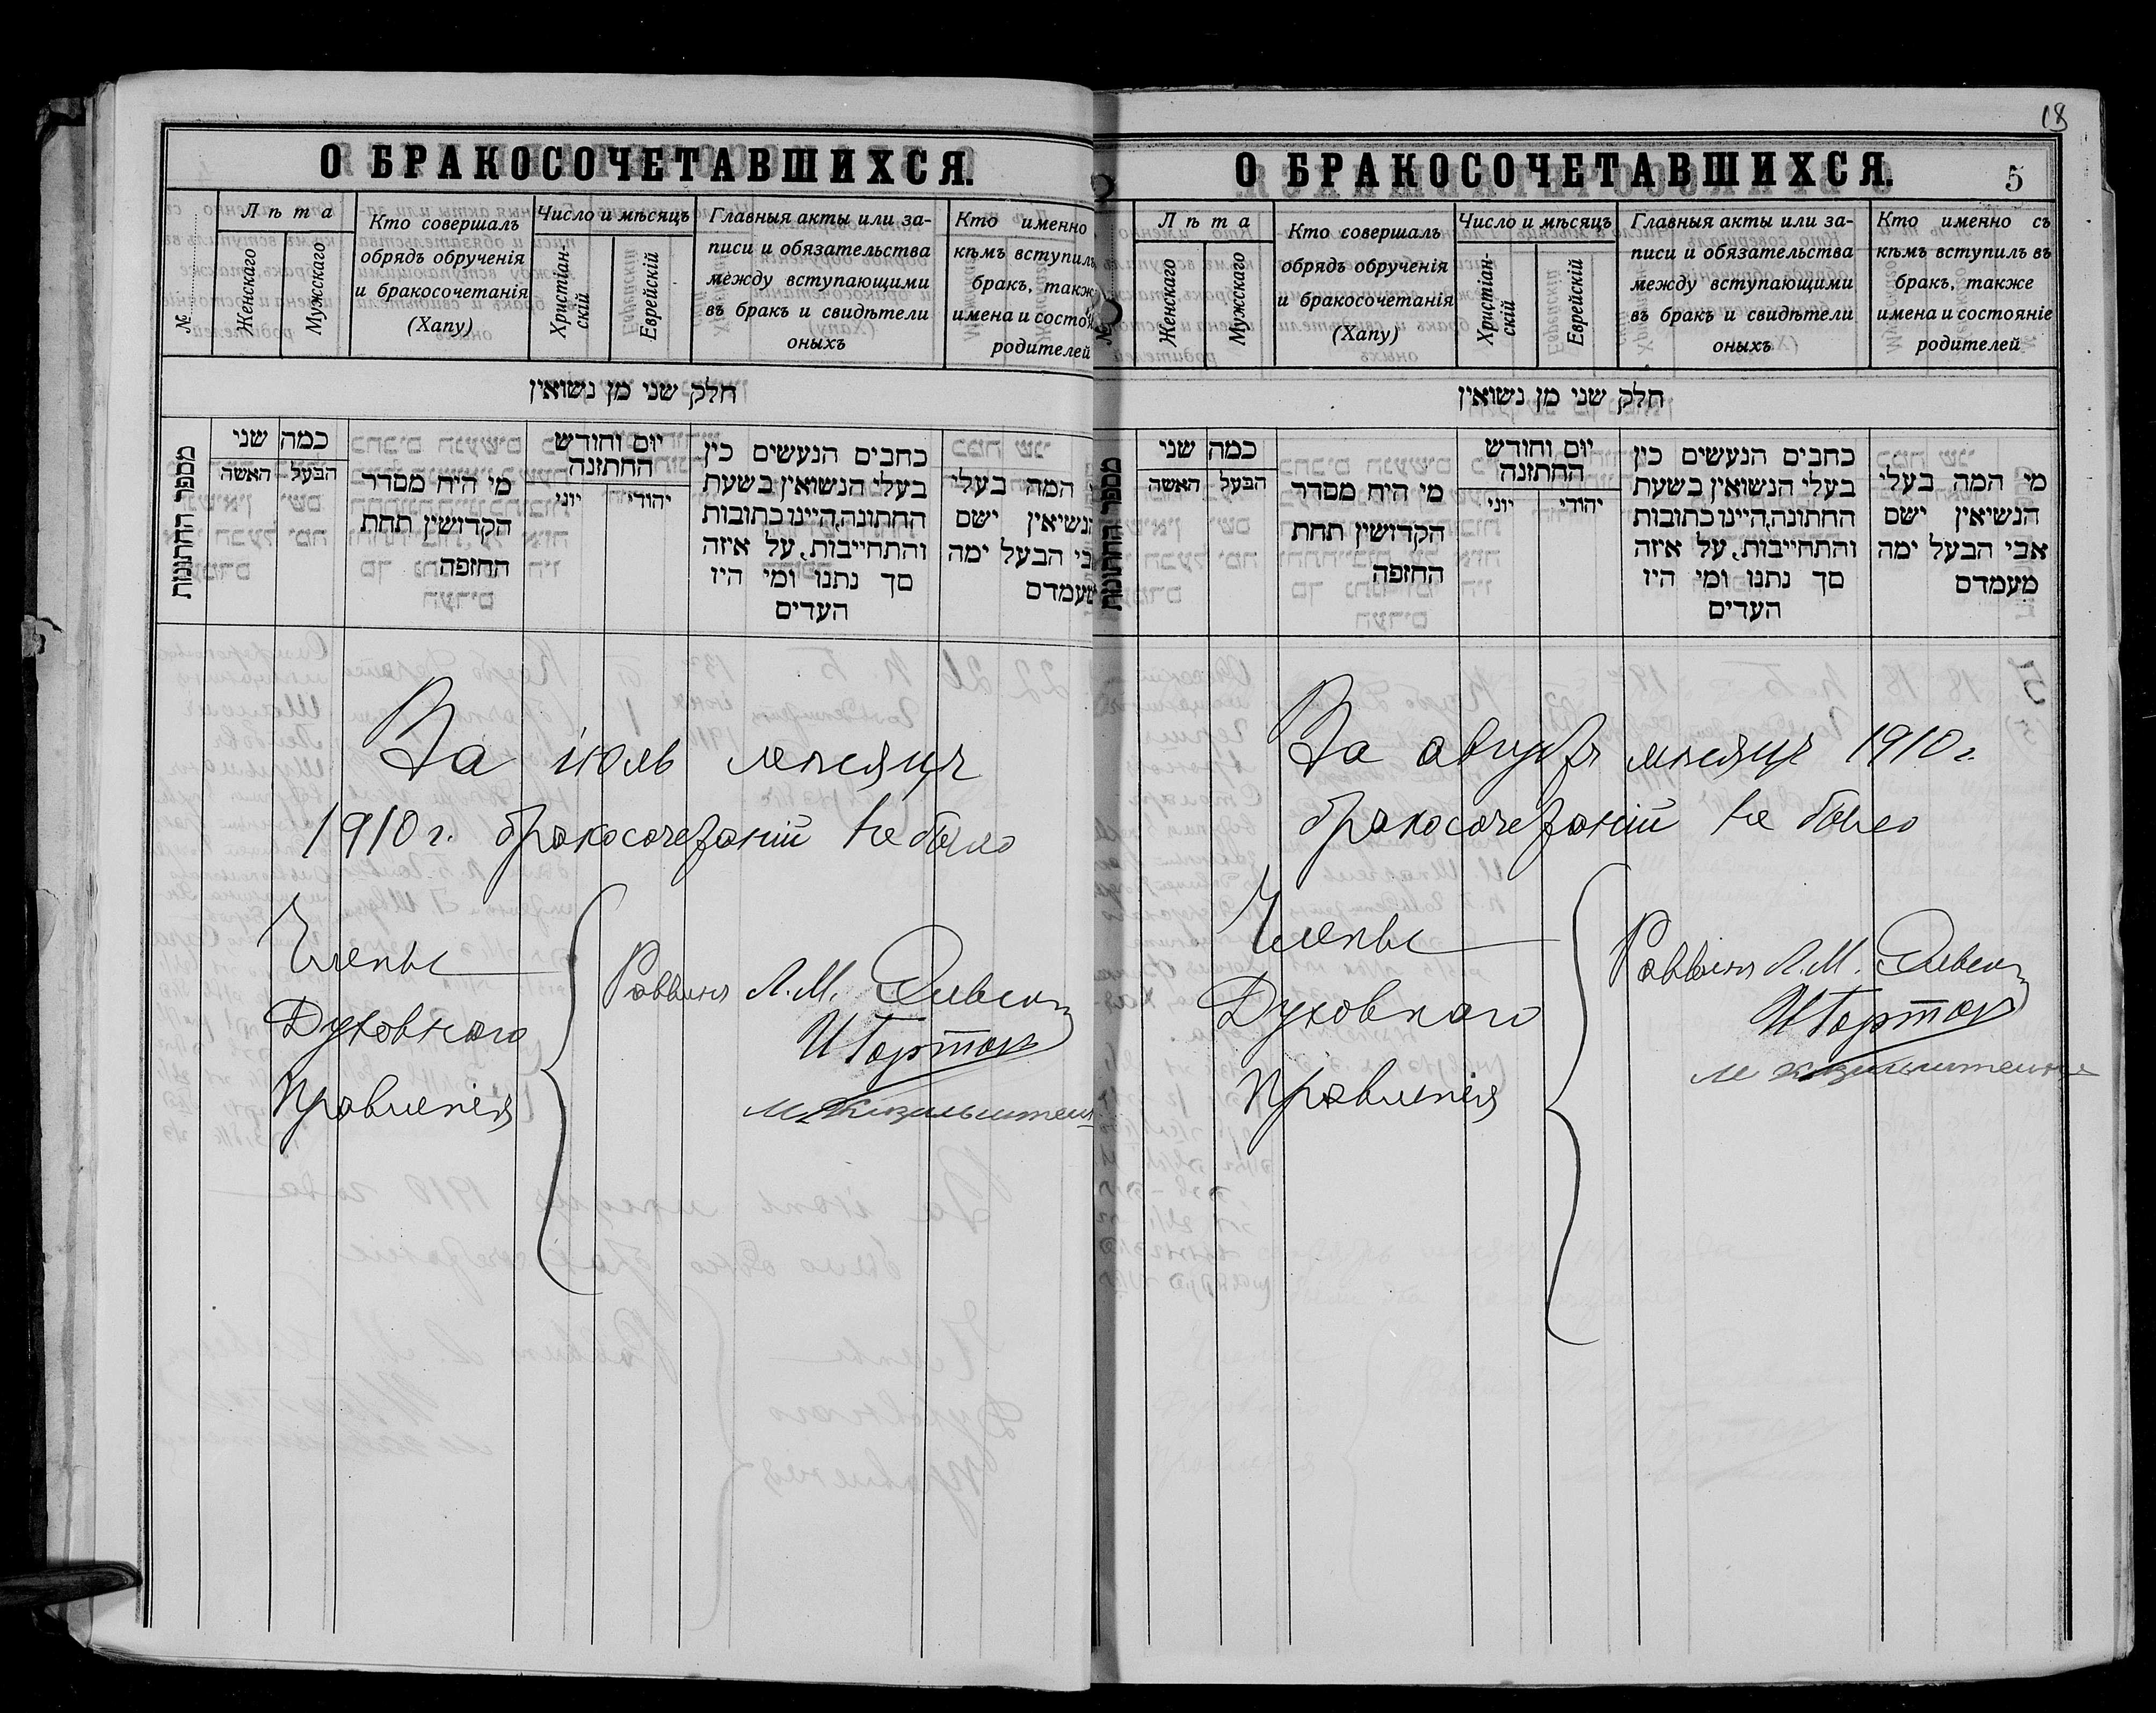 О БРАКОСОЧЕТАВШИХСЯ.
№
Лѣта
Женскаго
Мужскаго
Кто совершалъ
обрядъ обрученія
и бракосочетанія
(Хапу)
Число и мѣсяцъ
Христіан-
скій
Еврейскій
Главныя акты или за-
писи и обязательства
между вступающими
въ бракъ и свидѣтели
оныхъ
Кто именно
кѣмъ вступилъ
бракъ, также
имена и состоя
родителей
חלק שני מן נשואין
מספר החתונות
כמה שני
הבעל האשה
מי היח מסדר
הקדושין תחת
החזפה
יום וחודש
החתזנה
יהודי יוני
כחבים הנעשים כין
בעלי הנשואין בשעת
החתונה, היינו כתובות
והתחייבות, על איזה
סך נתנו ומי היז
העדים
המה בעלי
הנשיאין ישם
בי הבעל ימה
מעמדם
За іюль мѣсяцъ
1910 г. бракосочетаній не было
Члены
Духовнаго
Правленія
Раввинъ Л.М.
И Гортон
18
О БРАКОСОЧЕТАВШИХСЯ.
5
№
Лѣта
Женскаго
Мужскаго
Кто совершалъ
обрядъ обрученія
и бракосочетанія
(Хапу)
Число и мѣсяцъ
Христіан-
скій
Еврейскій
Главныя акты или за-
писи и обязательства
между вступающими
въ бракъ и свидѣтели
оныхъ
Кто именно съ
кѣмъ вступилъ въ
бракъ, также
имена и состояніе
родителей
חלק שני מן נשואין
מספר החתונות
כמה שני
הבעל האשה
מי היח מסדר
הקדושין תחת
החזפה
יום וחודש
החתזנה
יהודי יוני
כחבים הנעשים כין
בעלי הנשואין בשעת
החתונה, היינו כתובות
והתחייבות, על איזה
סך נתנו ומי היז
העדים
מי המה בעלי
הנשיאין ישם
אבי הבעל ימה
מעמדם
За августъ мѣсяцъ 1910 г.
бракосочетаній не было
Члены
Духовнаго
Правленія
Раввинъ Л.М.
И Гортон